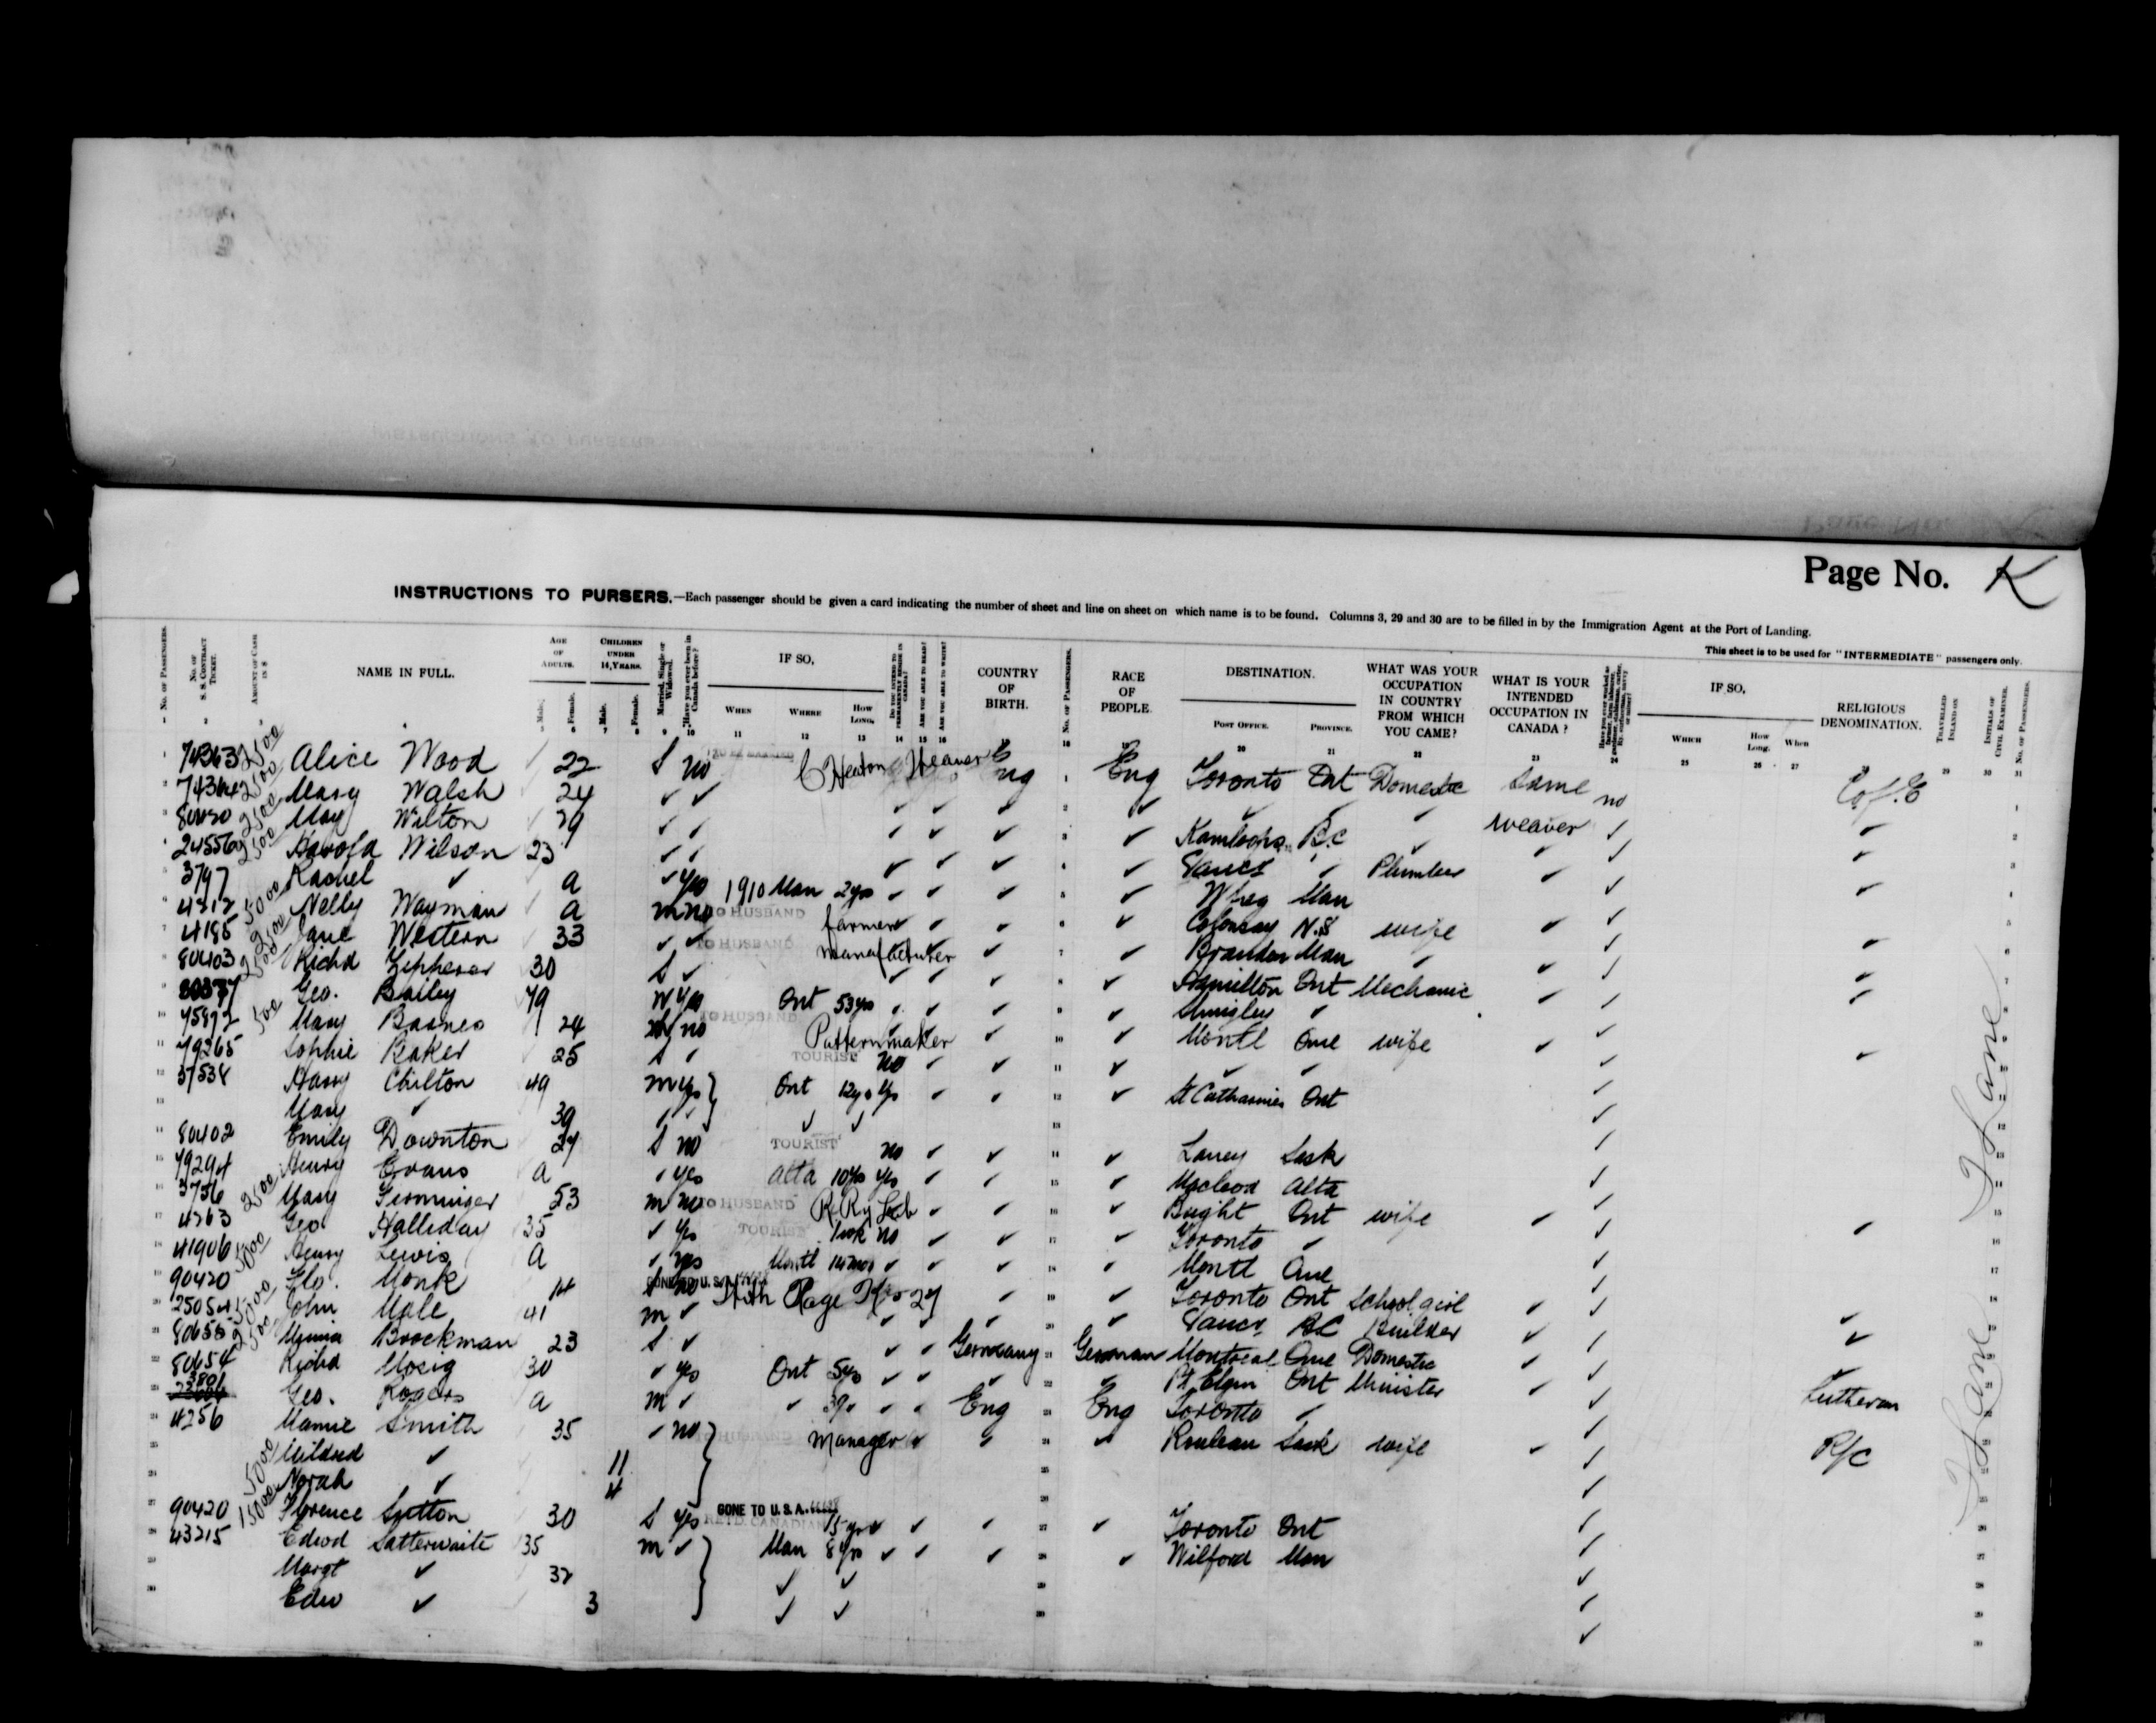 Page No. K
INSTRUCTIONS TO PURSERS.—Each passenger should be given a card indicating the number of sheet and line on sheet on which name is to be found. Columns 3, 29 and 30 are to be filled in by the Immigration Agent at the Port of Landing.
This sheet is to be used for "INTERMEDIATE" passengers only.
No. of Passengers. No. of S. S. Contract Ticket. Amount of Cash in $ NAME IN FULL. Age of Adults. Male. Female. Children under 14 Years. Male. Female. Married, Single or Widowed. Have you ever been in Canada before? IF SO, When Where How Long. Do you intend to permanently reside in Canada? Are you able to read? Are you able to write? COUNTRY OF BIRTH. No. of Passengers. RACE OF PEOPLE. DESTINATION. Post Office. Province. WHAT WAS YOUR OCCUPATION IN COUNTRY FROM WHICH YOU CAME? WHAT IS YOUR INTENDED OCCUPATION IN CANADA? IF SO, Which How Long. When RELIGIOUS DENOMINATION. Travelled Inland on Initials of Civil Examiner. No. of Passengers.
1 74363 2500 Alice Wood 22 S no C Heaton Weaver Eng 1 Eng Toronto Ont Domestic Same no C of E
2 74364 2500 Mary Walsh 24 ✓ ✓ 2
3 80420 2500 May Wilton 29 ✓ ✓ 3 Kamloops B.C ✓ weaver ✓
4 24556 2500 Harold Wilson 23 ✓ ✓ 4 Vancr ✓ Plumber ✓
5 3797 Rachel ✓ a ✓ yes 1910 Man 2yrs 5 Wpeg Man
6 4212 5000 Nelly Wayman a m no TO HUSBAND farmer 6 Colonsay N.S wife
7 4185 2500 Jane Western 33 ✓ ✓ TO HUSBAND manufacturer 7 Brandon Man ✓
8 80403 2500 Richd 30 S ✓ 8 Hamilton Ont Mechanic
9 80377 Geo. Bailey 79 W yes Ont 53yrs 9 ✓
10 75872 500 Mary Barnes 24 no TO HUSBAND Patternmaker 10 Montl Que wife
11 79265 Sophie Baker 25 S ✓ TOURIST no 11 ✓ ✓
12 37538 Harry Chilton 49 m yes Ont 12yrs yes 12 St Catharines Ont
13 Mary ✓ 39 ✓ ✓ ✓ ✓ 13
14 80402 Emily Downton 27 S no TOURIST no 14 Laney Sask
15 79294 Henry Evans a ✓ yes Alta 10yrs yes 15 Macleod Alta
16 3756 2500 Mary Gemminger 53 m no TO HUSBAND R. Ry Lab 16 Bright Ont wife
17 4263 Geo Halliday 35 ✓ yes TOURIST 1wk no 17 Toronto ✓
18 41906 5000 Henry Lewis a ✓ yes Montl 14mos 18 Montl Que
19 90420 Flo. Monk 14 S no GONE TO U.S.A. With Page K 27 19 Toronto Ont School girl
20 25054 5000 John Male 41 m ✓ 20 Vancr BC Builder
21 80655 2500 Minna Brockman 23 S ✓ Germany 21 German Montreal Que Domestic
22 80654 Richd Mosig 30 ✓ yes Ont 5yrs 22 Pt Elgin Ont Minister Lutheran
23 Geo. Rogers a m ✓ ✓ Eng 23 Eng Toronto ✓
24 4256 Mamie Smith 35 ✓ no TO HUSBAND Manager 24 Rouleau Sask wife R/C
25 5000 Mildred ✓ 11 25
26 Norah ✓ 4 26
27 90420 15000 Florence Sutton 30 S yes GONE TO U.S.A. RETD. CANADIAN 15 yrs 27 Toronto Ont
28 43215 Edwd Satterwaite 35 m ✓ Man 8yrs 28 Wilford Man
29 Margt ✓ 32 ✓ ✓ 29
30 Edw ✓ 3 ✓ ✓ 30